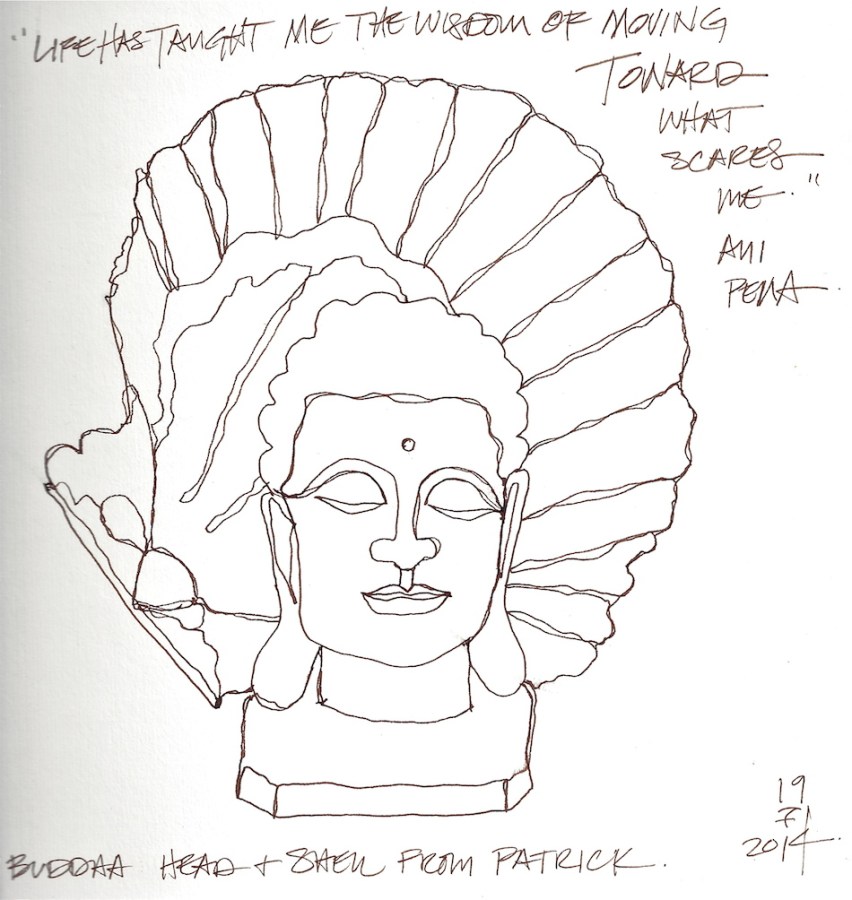 "LIFE HAS TAUGHT ME THE WISDOM OF MOVING
TOWARD
WHAT
SCARES
ME."
AMI
PENA
19
2014
BUDDAA HEAD + SHELL FROM PATRICK.